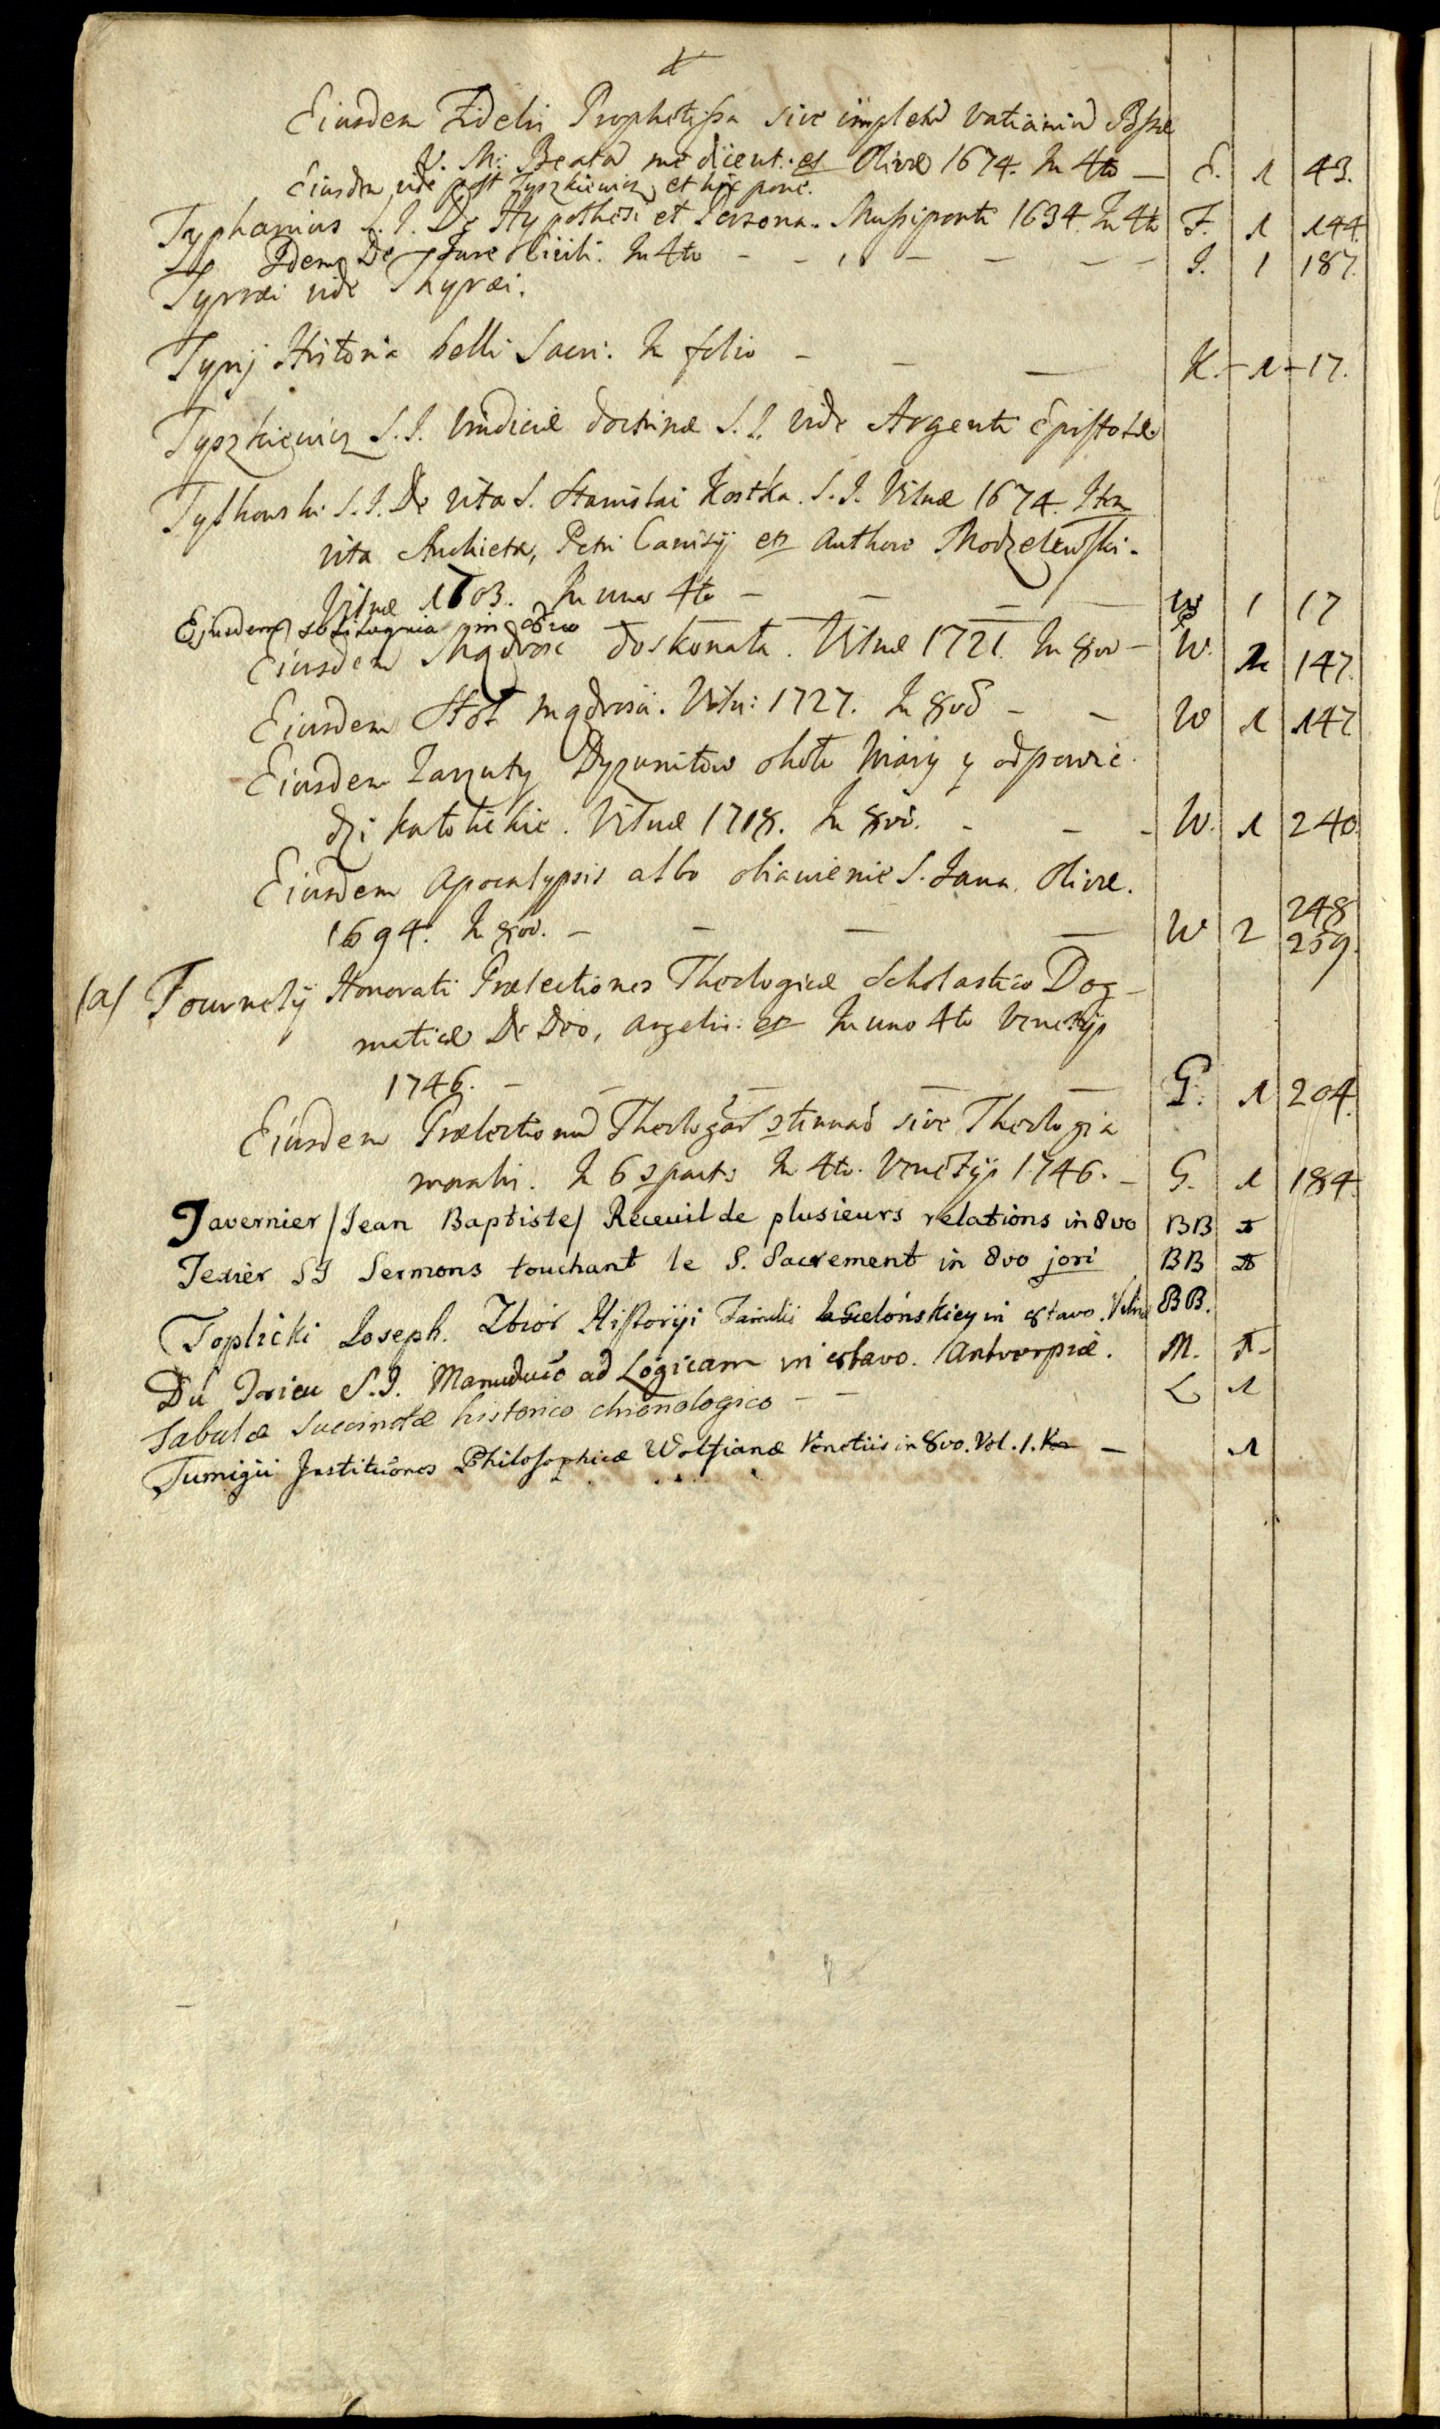 Eiusdem Fidelis Prophetissa sive impleta vaticinia Bssæ
V. M: Beatam me dicent. etc Olivæ 1674. In 4to — E. 1 43.
Eiusdem vide post Tyszkiewicz et hic pone.
Typhanius S. I. De Hypothesi et Persona. Mussiponti 1634. In 4to F. 1 144.
Idem De Jure Civili. In 4to - - - - - - I. 1 187.
Tyrræi vide Thyræi.
Tyrij Historia belli Sacri. In folio - - — K. - 1 - 17.
Tyszkiewicz S. I. Vindiciæ doctrinæ S. I. vide Argenti Epistolæ
Tylkowski S. I. De vita S. Stanislai Kostka. S. I. Vilnæ 1674. Item
vita Anchietæ, Petri Canisij etc Authore Modzelewski.
Vilnæ 1603. In uno 4to — — — — W 1 17
Ejusdem soliloquia in 8vo
Eiusdem Mądrosc doskonała. Vilnæ 1721. In 8vo — W. 147.
Eiusdem Stół mądrosci. Viln: 1727. In 8vo - - W 1 147
Eiusdem Zarzuty Dyzunitow około Wiary y odpowie
dzi katolickie. Vilnæ 1718. In 8vo. - - - W. 1 240.
Eiusdem Apocalypsis albo obiawienie S. Jana. Olivæ.
1694. In 8vo. — — — — W 2 248
259.
(a) Tournely Honorati Prælectiones Theologicæ Scholastico Dog-
maticæ De Deo, Angelis: etc In uno 4to Venetijs
1746. — — — — — G. 1 204.
Eiusdem Prælectionum Theologicar. sive Theologia
moralis. In 6 parts In 4to. Venetijs 1746. - G. 1 184.
Tavernier /Jean Baptiste/ Receuil de plusieurs relations in 8vo BB
Texier SJ Sermons touchant le S. Sacrement in 8vo BB
Toplicki Joseph. Zbiór Historyi Familii Jagielońskiey in octavo. Vilnæ BB.
Du Trieu S. J. Manuductio ad Logicam in octavo. Antverpiæ. M. 1 -
Tabulæ Succinctæ historico chronologico - — L 1
Tumigii Institutiones Philosophicæ Wolfianæ Venetiis in 8vo. Vol. 1. — 1